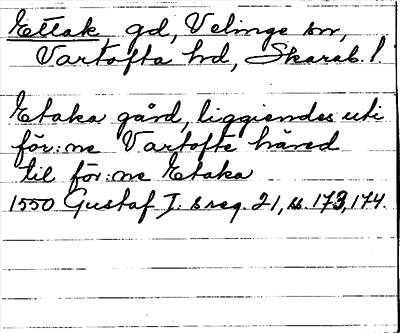 Ettak gd, Velinge sn,
Vartofta hd, Skarab. l.
Etaka gård, liggiendes uti
för:ne Vartofte häred
til för:ne Etaka
1550 Gustaf I. s reg. 21, s. 173, 174.